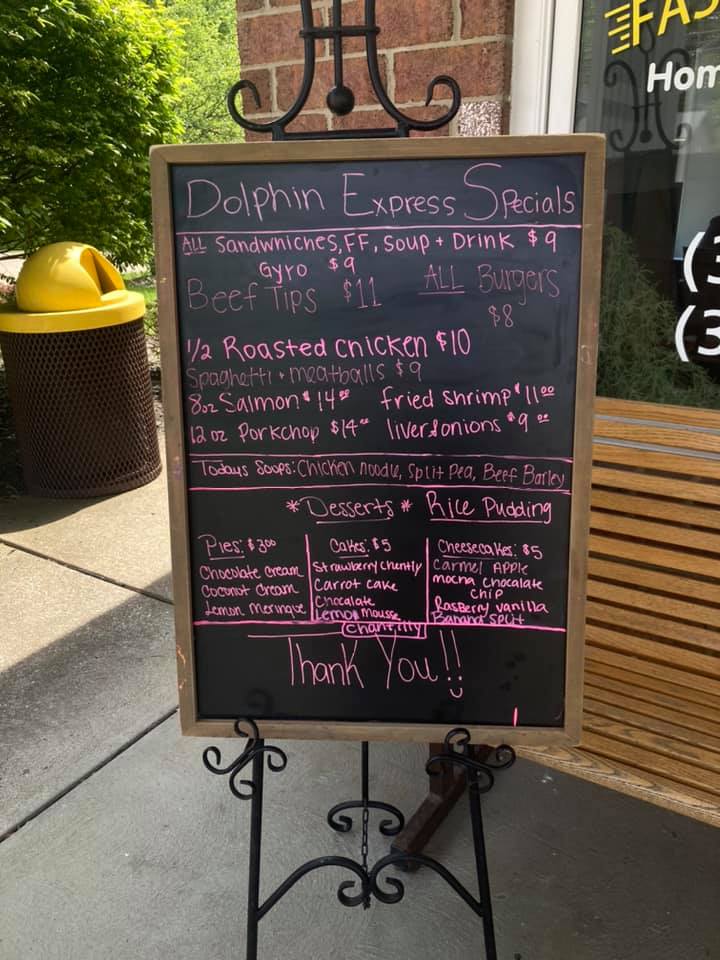 FAS
Hom
(3
(3
Dolphin Express Specials
ALL Sandwniches, FF, Soup + Drink $9
Gyro $9
Beef Tips $11 ALL Burgers
$8
1/2 Roasted chicken $10
Spaghetti + meatballs $9
8oz Salmon $14 fried shrimp $11.00
12 oz Porkchop $14 liver & onions $9.00
Todays Soups: Chicken noodle, Split Pea, Beef Barley
*Desserts* Rice Pudding
Pies: $3.00
Chocolate Cream
Coconut Cream
Lemon Meringue
Cakes: $5
Strawberry chently
Carrot cake
Chocalate
Lemon Mousse
chantilly
Cheesecakes: $5
Carmel Apple
mocha chocalate
chip
Rasberry vanilla
Banana Split
Thank You!!